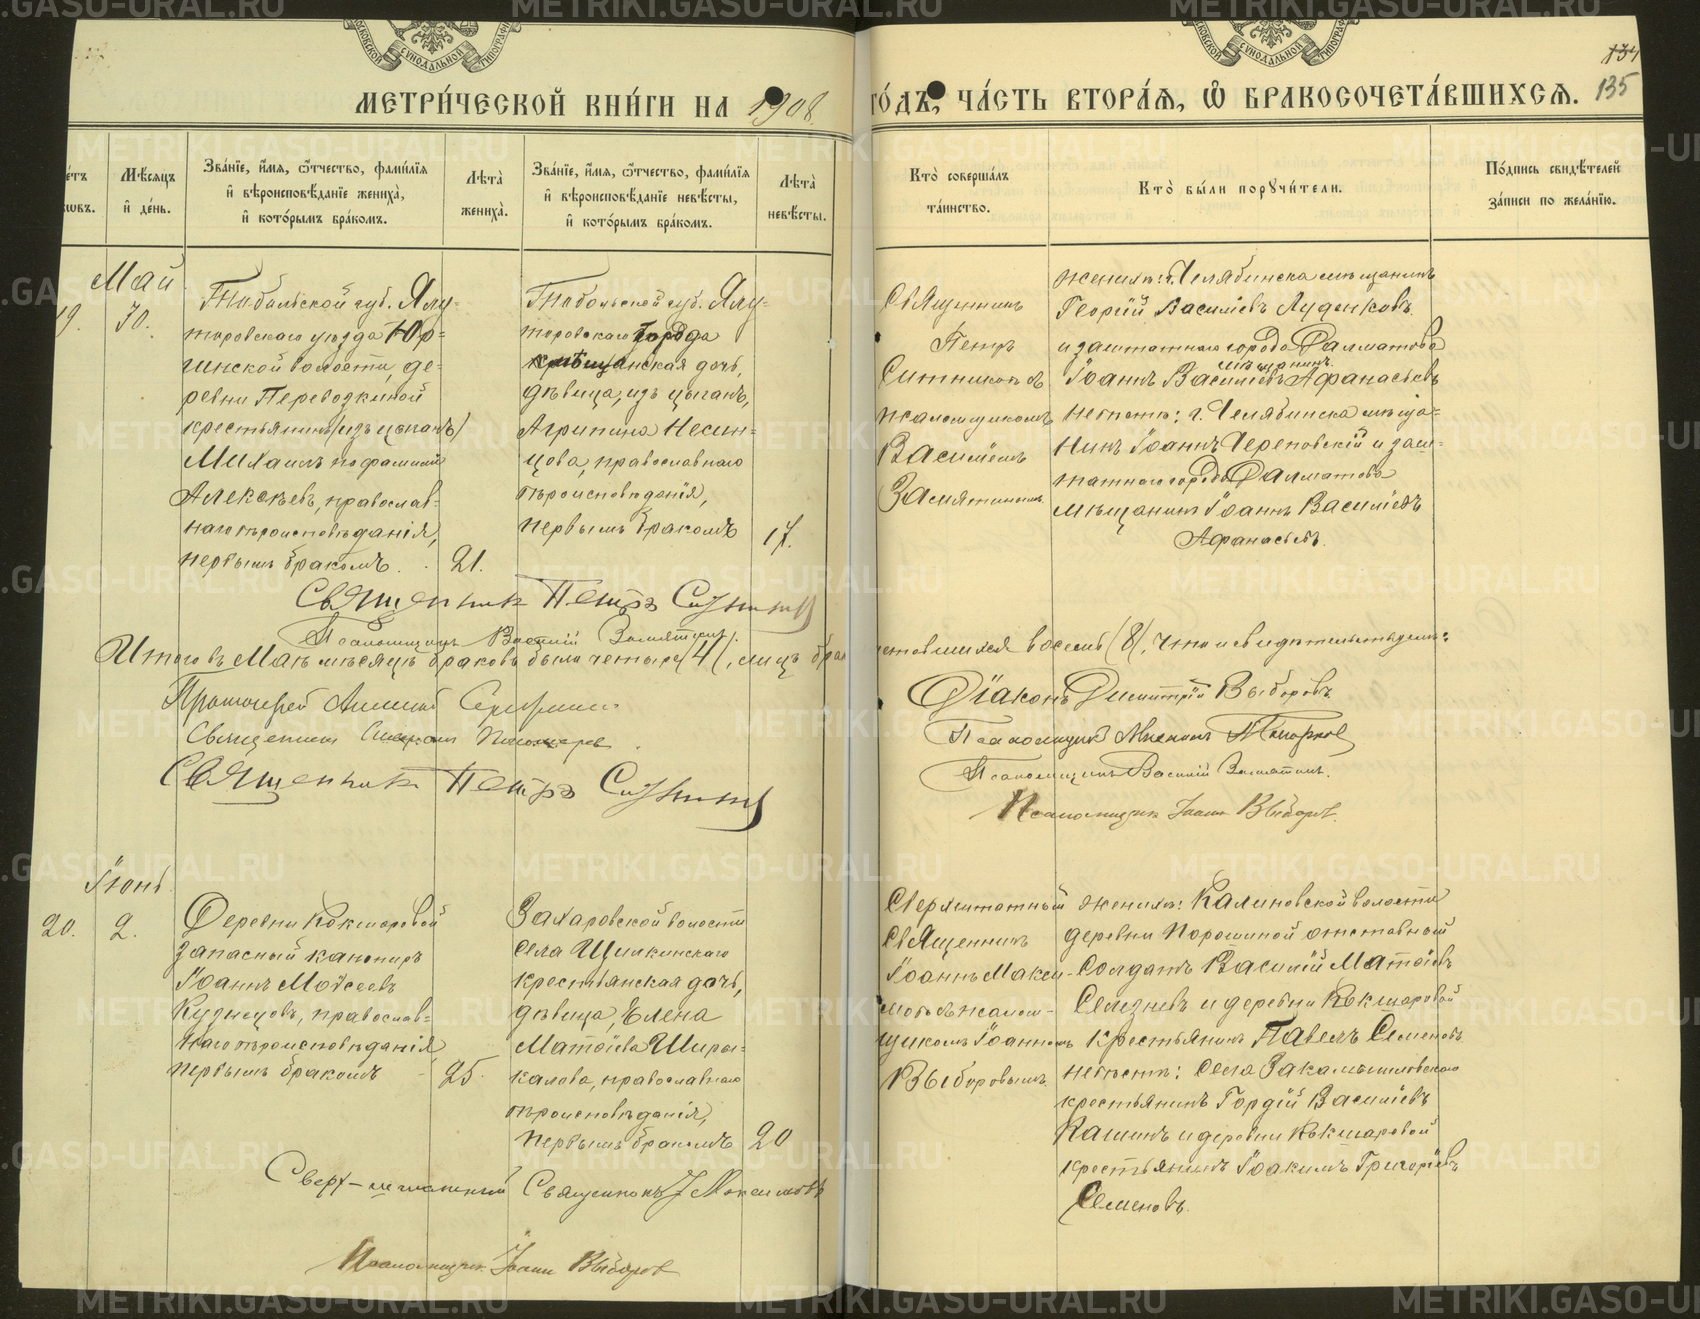 МЕТРИ́ЧЕСКОЙ КНИ́ГИ НА 1908 ГО́ДЪ, ЧА́СТЬ ВТОРА́Ѧ, Ѽ БРАКОСОЧЕТА́ВШИХСѦ.
134
135
Мѣ́сѧцъ и҆ де́нь.
Зва́нїе, и҆́мѧ, ѻ҆́тчество, фами́лїѧ и҆ вѣроисповѣ́данїе жениха̀, и҆ кото́рымъ бра́комъ.
Лѣта̀ жениха̀.
Зва́нїе, и҆́мѧ, ѻ҆́тчество, фами́лїѧ и҆ вѣроисповѣ́данїе невѣ́сты, и҆ кото́рымъ бра́комъ.
Лѣта̀ невѣ́сты.
Кто̀ соверша́лъ та́инство.
Кто̀ бы́ли порꙋчи́тели.
По́дпись свидѣ́телей за́писи по жела́нїю.
Май
19.
30.
Тобольской губ. Ялу-
торовскаго уѣзда Юр-
гинской волости, де-
ревни Переводкиной
крестьянинъ (изъ цыганъ)
Михаилъ по фамилии
Алексѣевъ, православ-
наго вѣроисповѣданія,
первымъ бракомъ.
21.
Тобольской губ. Ялу-
торовскаго города
мѣщанская дочь,
дѣвица, изъ цыганъ,
Агрипина Несин-
цова, православнаго
вѣроисповѣданія,
первымъ бракомъ
17.
Священникъ
Петръ
Ситниковъ съ
псаломщикомъ
Василіемъ
Замятинымъ.
жениха: г. Челябинска мѣщанинъ
Георгій Васильевъ Луденковъ
и заштатнаго города Далматова
мѣщанинъ
Іоаннъ Васильевъ Афанасьевъ
невѣсты: г. Челябинска мѣща-
нинъ Іоаннъ Череповскій и заш-
татнаго города Далматова
мѣщанинъ Іоаннъ Васильевъ
Афанасьевъ.
Священникъ Петръ Ситниковъ
Псаломщикъ Василій Замятинъ.
Итого въ Маѣ мѣсяцѣ браковъ было четыре (4), лицъ бра
сочетавшихся восемь (8), что и свидѣтельствуемъ:
Протоіерей
Священникъ
Священникъ Петръ Ситниковъ
Діаконъ Димитрій Выборовъ
Псаломщикъ
Псаломщикъ Василій Замятинъ.
Псаломщикъ Іоаннъ Выборовъ.
Іюнь
20.
2.
Деревни Кокшаровой
запасный канониръ
Іоаннъ Моѵсеевъ
Кузнецовъ, православ-
наго вѣроисповѣданія
первымъ бракомъ
25.
Захаровской волости
села Шипкинскаго
крестьянская дочь,
дѣвица, Елена
Матѳіева Широ-
калова, православнаго
вѣроисповѣданія,
первымъ бракомъ
20
Сверхштатный
Священникъ
Іоаннъ Макси-
мовъ съ псалом-
щикомъ Іоанномъ
Выборовымъ
жениха: Калиновской волости
деревни Порошиной отставный
солдатъ Василій Матѳіевъ
Селезневъ и деревни Кокшаровой
крестьянинъ Павелъ Семеновъ
невѣсты: села Закамышловскаго
крестьянинъ Гордій Васильевъ
Кашинъ и деревни Кокшаровой
крестьянинъ Іоакимъ Григорьевъ
Семеновъ.
Сверх-штатный Священникъ І Максимовъ
Псаломщикъ Іоаннъ Выборов